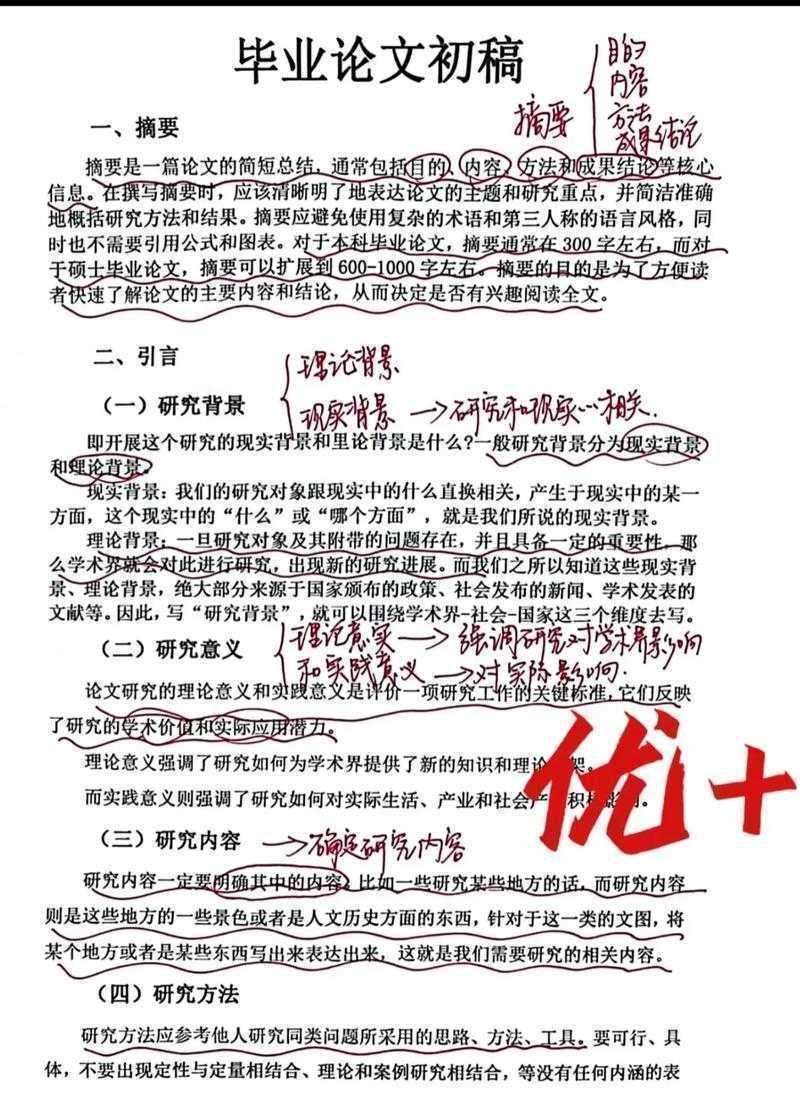 毕业论文初稿
摘要
目的
内容
方法
成果结论
一、摘要
摘要是一篇论文的简短总结，通常包括目的、内容、方法和成果结论等核心
信息。在撰写摘要时，应该清晰明了地表达论文的主题和研究重点，并简洁准确
地概括研究方法和结果。摘要应避免使用复杂的术语和第三人称的语言风格，同
时也不需要引用公式和图表。对于本科毕业论文，摘要通常在 300 字左右，而对
于硕士毕业论文，摘要可以扩展到 600-1000 字左右。摘要的目的是为了方便读
者快速了解论文的主要内容和结论，从而决定是否有兴趣阅读全文。
二、引言
理论背景
现实背景 →研究和现实心相关.
（一）研究背景
即开展这个研究的现实背景和里论背景是什么?一般研究背景分为现实背景
和理论背景。
现实背景：我们的研究对象跟现实中的什么直换相关，产生于现实中的某一
方面，这个现实中的“什么”或“哪个方面”，就是我们所说的现实背景。
理论背景：一旦研究对象及其附带的问题存在，并且具备一定的重要性，那
么学术界就会对此进行研究，出现新的研究进展。而我们之所以知道这些现实背
景、理论背景，绝大部分来源于国家颁布的政策、社会发布的新闻、学术发表的
文献等。因此，写“研究背景”，就可以围绕学术界-社会-国家这三个维度去写。
（二）研究意义
理论意实 → 强调研究对学术界影响
和实践意义 → 对实际影响.
论文研究的理论意义和实践意义是评价一项研究工作的关键标准，它们反映
了研究的学术价值和实际应用潜力。
理论意义强调了研究如何为学术界提供了新的知识和理论 架。
而实践意义则强调了研究如何对实际生活、产业和社会产 积极影响。
优+
（三）研究内容 →确定研究内容
研究内容一定要明确其中的内容，比如一些研究某些地方的话，而研究内容
则是这些地方的一些景色或者是人文历史方面的东西，针对于这一类的文图，将
某个地方或者是某些东西写出来表达出来，这就是我们需要研究的相关内容。
（四）研究方法
研究方法应参考他人研究同类问题所采用的思路、方法、工具。要可行、具
体，不要出现定性与定量相结合、理论和案例研究相结合，等没有任何内涵的表